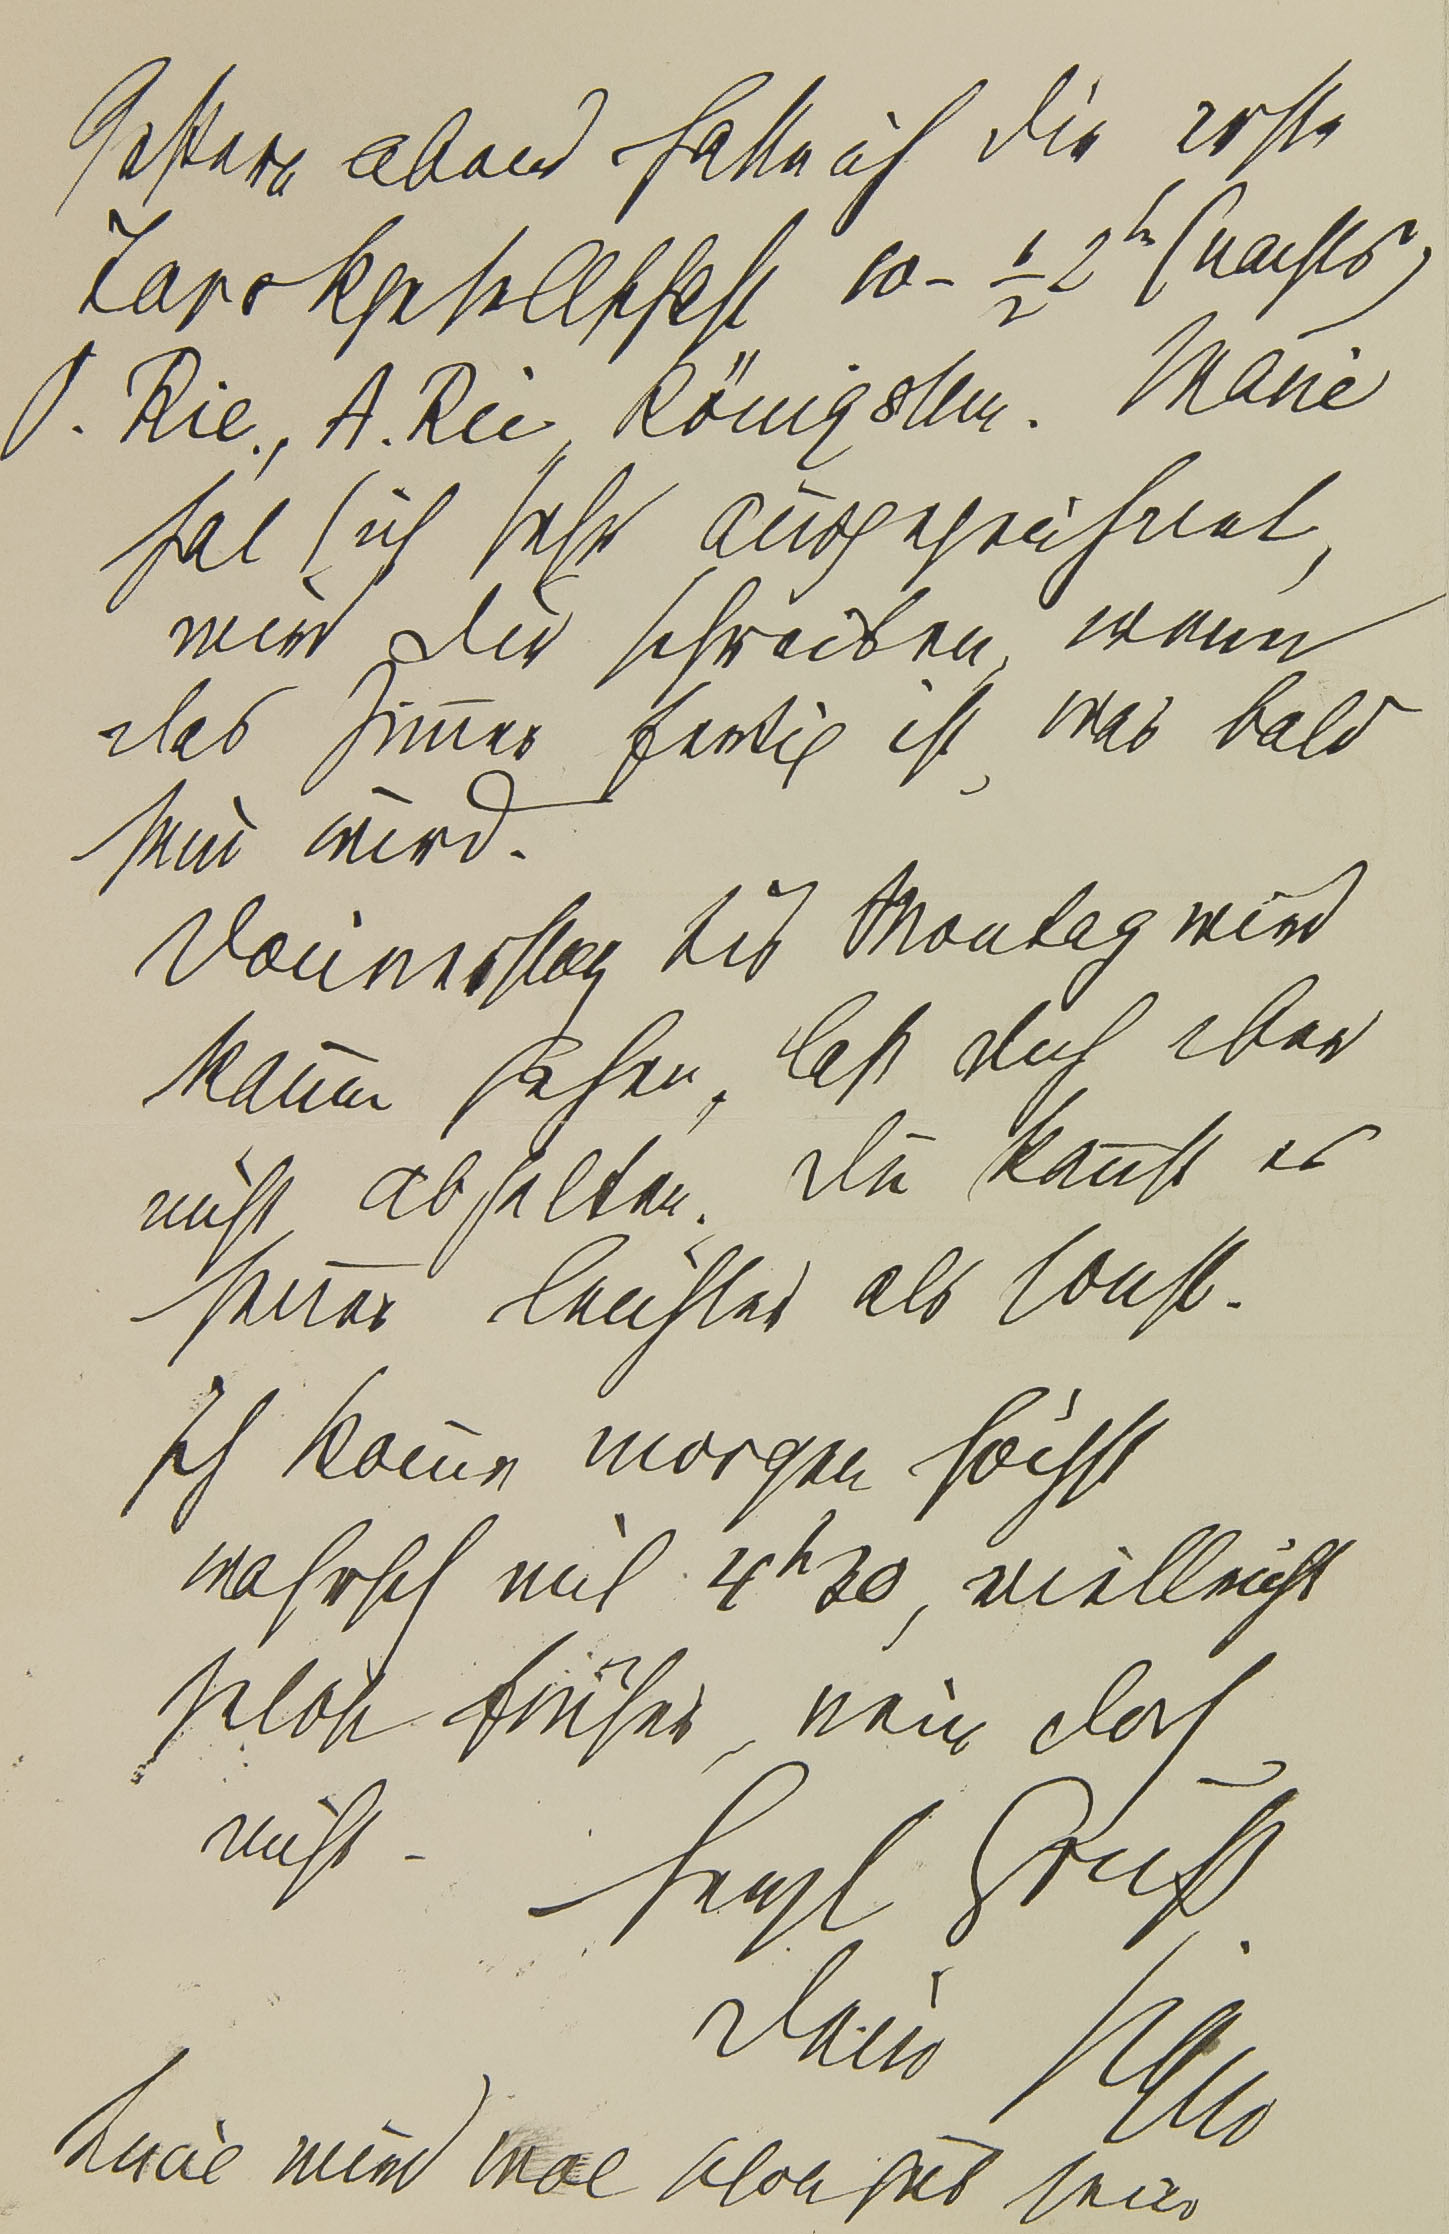 Gestern abend hatte ich die erste
Tarokgesellschaft 10 – ½2h (nachts)
O. Rie., A. Rie, Königstein. Marie
hat sich sehr ausgezeichnet,
wird Dir schreiben, wenn
das Zimer fertig ist, was bald
sein wird.
Donnerstag bis Montag wird
kaum gehen, laß Dich aber
nicht abhalten. Du kannst es
heuer leichter als sonst.
Ich kome morgen höchst
wahrsch mit 4h30, vielleicht
schon früher, nein doch
nicht –
herzl Gruß
Dein
wird wol schon sein